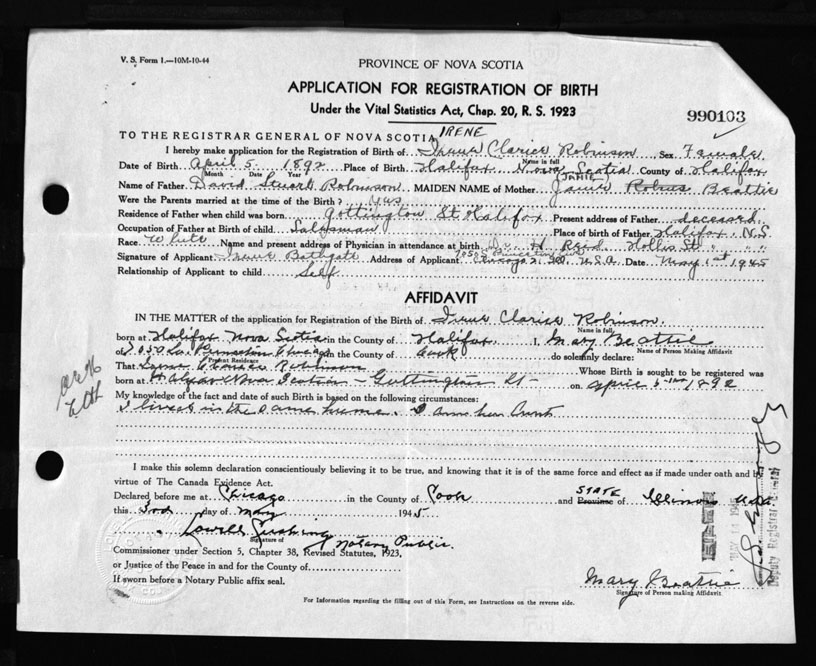 V. S. Form 1.—10M-10-44
PROVINCE OF NOVA SCOTIA
APPLICATION FOR REGISTRATION OF BIRTH
Under the Vital Statistics Act, Chap. 20, R. S. 1923
990103
TO THE REGISTRAR GENERAL OF NOVA SCOTIA IRENE
I hereby make application for the Registration of Birth of Irene Clarice Robinson, Sex Female
Name in full
Date of Birth April 5. 1892 Place of Birth Halifax Nova Scotia County of Halifax
Month Date Year
JANIE
Name of Father David Stuart Robinson, MAIDEN NAME of Mother Janie Beattie
Were the Parents married at the time of the Birth? Yes
Residence of Father when child was born Gottington St Halifax Present address of Father deceased
Occupation of Father at Birth of child Salesman Place of birth of Father Halifax, N.S
Race White Name and present address of Physician in attendance at birth Dr. H Reid Hollis St.
Signature of Applicant Irene Bathgate Address of Applicant 7050 Chicago U.S.A. Date May 1st 1945
Relationship of Applicant to child Self
AFFIDAVIT
IN THE MATTER of the application for Registration of the Birth of Irene Clarice Robinson
Name in full
born at Halifax Nova Scotia in the County of Halifax. I, Mary Beattie
Name of Person Making Affidavit
of 7050 So. Princeton Chicago in the County of Cook do solemnly declare:
Present Residence
That Robinson Whose Birth is sought to be registered was
born at Nova Scotia - Gottington St - on April 5 1892
My knowledge of the fact and date of such Birth is based on the following circumstances:
I lived in the same home. I am her Aunt
I make this solemn declaration conscientiously believing it to be true, and knowing that it is of the same force and effect as if made under oath and by
virtue of The Canada Evidence Act.
Declared before me at Chicago in the County of Cook and STATE Province of Illinois USA
this 3rd day of May 1945
Lowell Cushing Notary Public.
Signature of
Commissioner under Section 5, Chapter 38, Revised Statutes, 1923,
or Justice of the Peace in and for the County of
If sworn before a Notary Public affix seal.
Mary Beattie
Signature of Person making Affidavit
For Information regarding the filling out of this Form, see Instructions on the reverse side.
MAY 14 1945
Deputy Registrar General